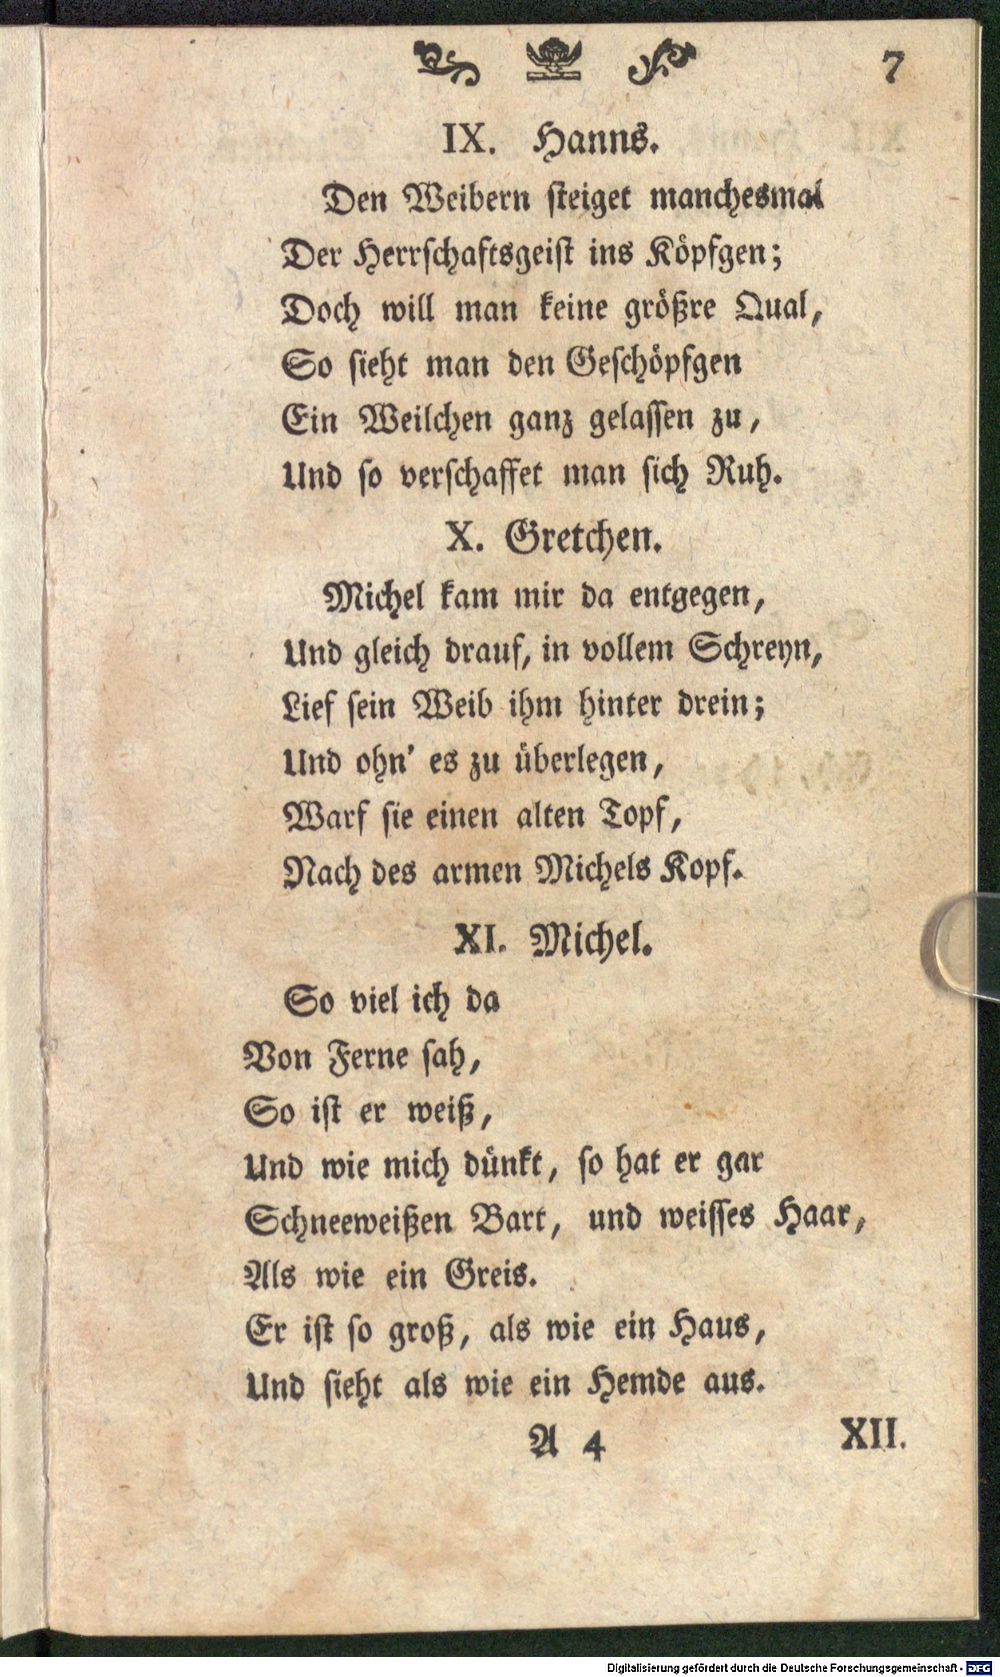 7
IX. Hanns.
Den Weibern steiget manchesmal
Der Herrschaftsgeist ins Köpfgen;
Doch will man keine größre Qual,
So sieht man den Geschöpfgen
Ein Weilchen ganz gelassen zu,
Und so verschaffet man sich Ruh.
X. Gretchen.
Michel kam mir da entgegen,
Und gleich drauf, in vollem Schreyn,
Lief sein Weib ihm hinter drein;
Und ohn' es zu überlegen,
Warf sie einen alten Topf,
Nach des armen Michels Kopf.
XI. Michel.
So viel ich da
Von Ferne sah,
So ist er weiß,
Und wie mich dünkt, so hat er gar
Schneeweißen Bart, und weisses Haar,
Als wie ein Greis.
Er ist so groß, als wie ein Haus,
Und sieht als wie ein Hemde aus.
A 4 XII.
Digitalisierung gefördert durch die Deutsche Forschungsgemeinschaft - DFG